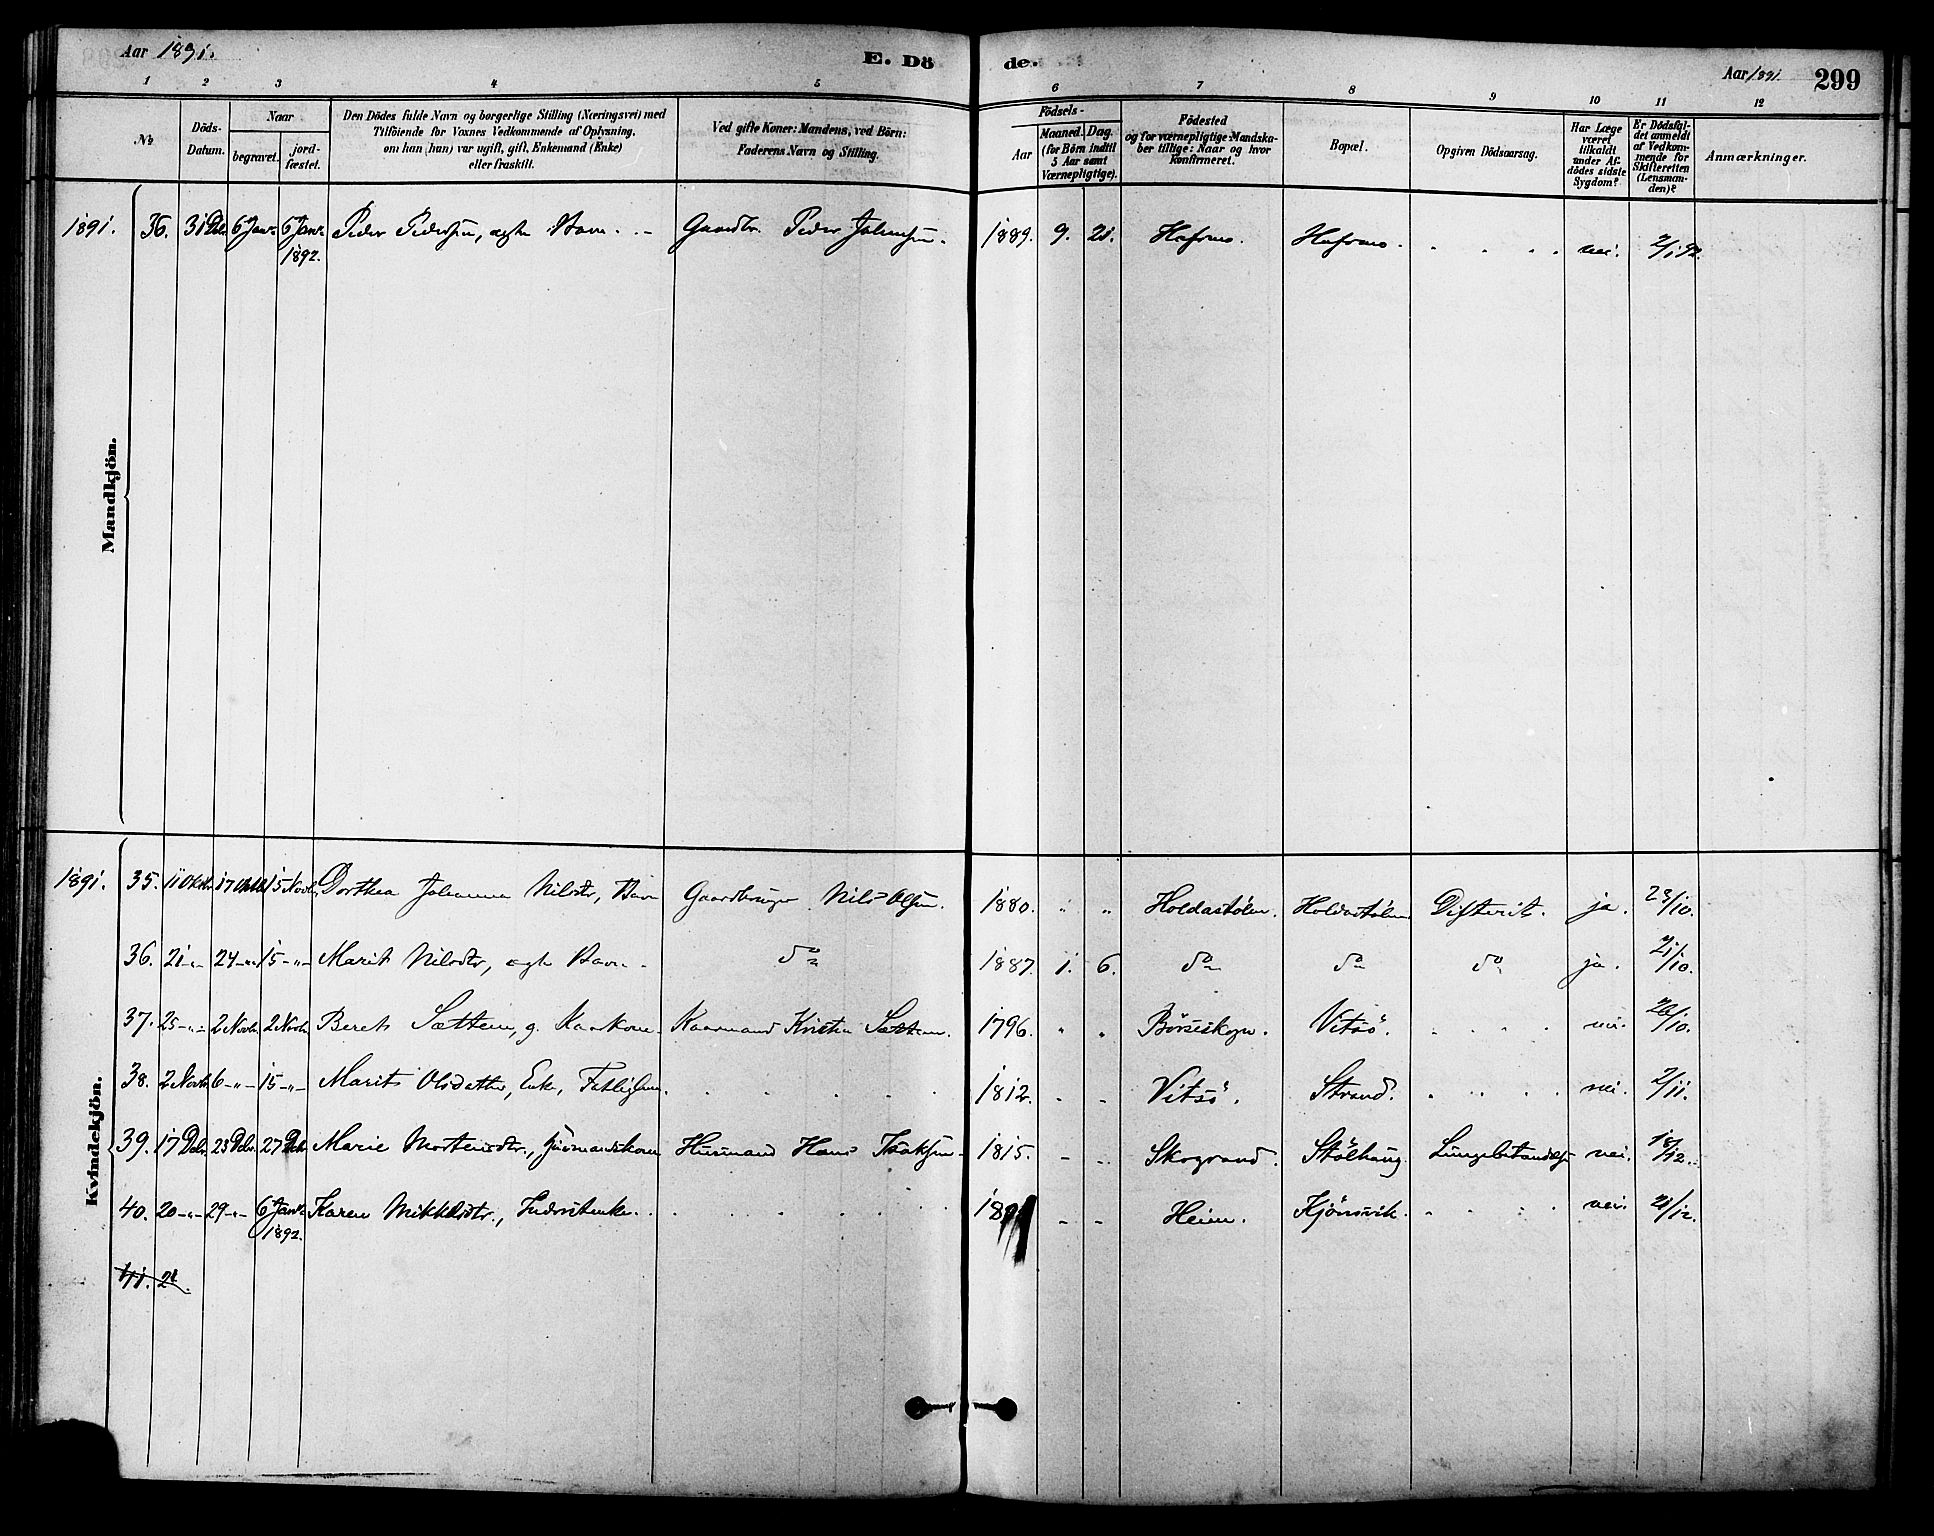 Aar 1891.
E. Dö
de.
Aar 1891.
299
1 2 3 4 5 6 7 8 9 10 11 12
No
Döds-Datum.
Naar
begravet.
jord-fæstet.
Den Dödes fulde Navn og borgerlige Stilling (Næringsvei) med
Tilföiende for Voxnes Vedkommende af Oplysning,
om han (hun) var ugift, gift, Enkemand (Enke)
eller fraskilt.
Ved gifte Koner: Mandens, ved Börn:
Faderens Navn og Stilling.
Födsels-
Aar
Maaned. Dag.
(for Börn indtil
5 Aar samt
Værnepligtige).
Födested
og for værnepligtige Mandska-
ber tillige: Naar og hvor
Konfirmeret.
Bopæl.
Opgiven Dödsaarsag.
Har Læge
været
tilkaldt
under Af-
dödes sidste
Sygdom?
Er Dödsfal-
det anmeldt
af Vedkom-
mende for
Skifteretten
(Lensman-
den)?
Anmærkninger.
Mandkjön.
1891. 36. 31 Dcbr. 6 Janr. 6 Janr. Peder Pedersen, ægte Barn. Gaardbr. Peder Johnsen. 1889. 9. 21. Hafsmo. Hafsmo. nei. 2/1 92.
1892.
Kvindekjön.
1891. 35. 11 Oktbr. 17 Oktbr. 15 Novbr. Dorthea Johanna Nilsdtr, Barn Gaardbruger Nils Olsen. 1880. " " Holdastølen. Holdastølen Difterit. ja. 23/10.
36. 21 -"- 24 -"- 15 -"- Marit Nilsdtr, ægte Barn. do 1887. 1. 6. do do do ja. 21/10.
37. 25 -"- 2 Novbr. 2 Novbr. Beret Sættem, g. Kaarkone. Kaarmand Kristen Sættem. 1796. " " Börseskogn. Vitsö. nei. 26/10.
38. 2 Novbr. 6 -"- 15 -"- Marit Olsdatter, Enke, Fattiglem. 1812. - - Vitsö. Strand. nei. 2/11.
39. 17 Dcbr. 23 Dcbr. 27 Dcbr. Marie Mortensdtr., Husmandskone Husmand Hans Isaksen. 1815. - - Skogrand. Stölhaug. Lungebetændelse nei. 18/12.
40. 20 -"- 29 -"- 6 Janr. Karen Mikkelsdtr., Inderstenke. - - Heim. Kjönsvik. nei. 21/12.
1892.
41. 21.